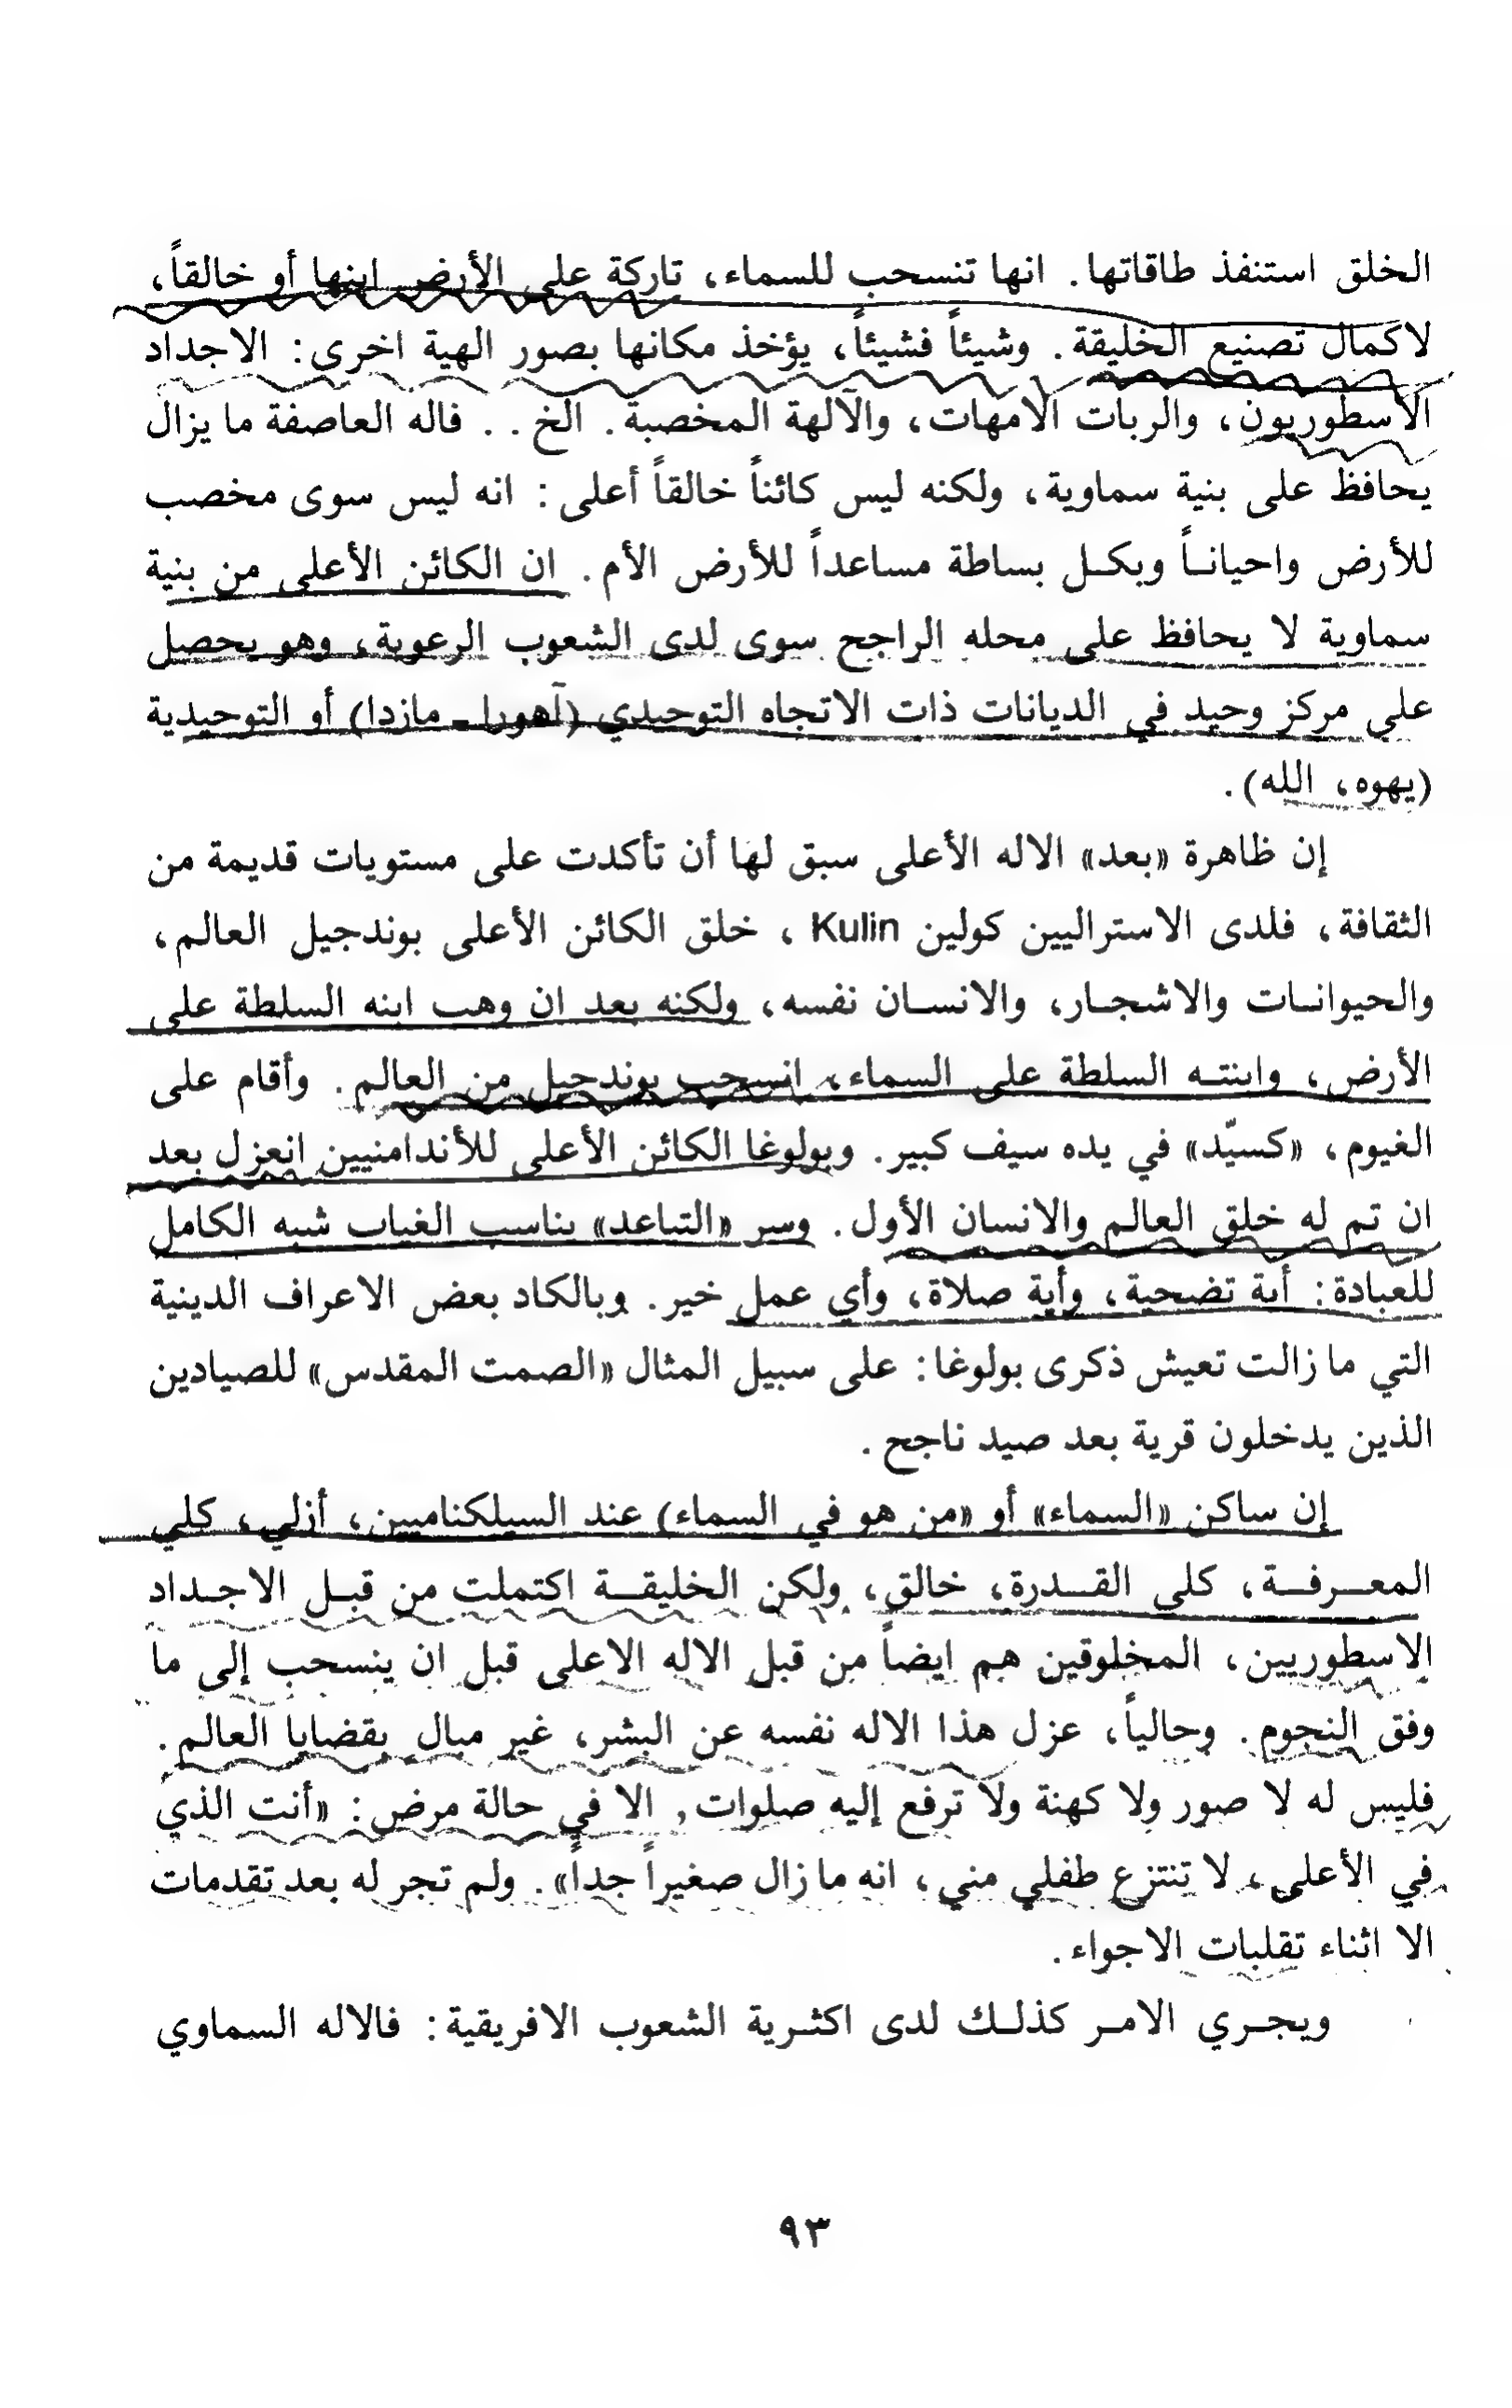 الخلق استنفذ طاقاتها. انها تنسحب للسماء، تاركة على الأرض ابنها أو خالقاً،
لاكمال تصنيع الخليقة. وشيئاً فشيئاً، يؤخذ مكانها بصور الهية اخرى: الاجداد
الاسطوريون، والربات الامهات، والآلهة المخصبة. الخ . . فاله العاصفة ما يزال
يحافظ على بنية سماوية، ولكنه ليس كائناً خالقاً أعلى: انه ليس سوى مخصب
للأرض واحيانـاً وبكـل بساطة مساعداً للأرض الأم. ان الكائن الأعلى من بنية
سماوية لا يحافظ على محله الراجح سوى لدى الشعوب الرعوية، وهو يحصل
على مركز وحيد في الديانات ذات الاتجاه التوحيدي (آهورا ـ مازدا) أو التوحيدية
(يهوه، الله).
إن ظاهرة «بعد» الاله الأعلى سبق لها أن تأكدت على مستويات قديمة من
الثقافة، فلدى الاستراليين كولين Kulin ، خلق الكائن الأعلى بوندجيل العالم،
والحيوانـات والاشجـار، والانسـان نفسه، ولكنه بعد ان وهب ابنه السلطة على
الأرض، وابنتـه السلطة على السماء، انسحب بوندجيل من العالم. وأقام على
الغيوم، «كسيّد» في يده سيف كبير. وبولوغا الكائن الأعلى للأندامنيين انعزل بعد
ان تم له خلق العالم والانسان الأول. وسر «التباعد» يناسب الغياب شبه الكامل
للعبادة: أية تضحية، وأية صلاة، وأي عمل خير. وبالكاد بعض الاعراف الدينية
التي ما زالت تعيش ذكرى بولوغا: على سبيل المثال «الصمت المقدس» للصيادين
الذين يدخلون قرية بعد صيد ناجح.
إن ساكن «السماء» أو «من هو في السماء) عند السيلكناميين، أزلي، كلي
المعـرفـة، كلي القـدرة، خالق، ولكن الخليقـة اكتملت من قبـل الاجـداد
الاسطوريين، المخلوقين هم ايضاً من قبل الاله الاعلى قبل ان ينسحب إلى ما
وفق النجوم. وحالياً، عزل هذا الاله نفسه عن البشر، غير مبال بقضايا العالم.
فليس له لا صور ولا كهنة ولا ترفع إليه صلوات, الا في حالة مرض: «أنت الذي
في الأعلى، لا تنتزع طفلي مني، انه ما زال صغيراً جداً». ولم تجر له بعد تقدمات
الا اثناء تقلبات الاجواء.
ويجـري الامـر كذلـك لدى اكثـرية الشعوب الافريقية: فالاله السماوي
٩٣